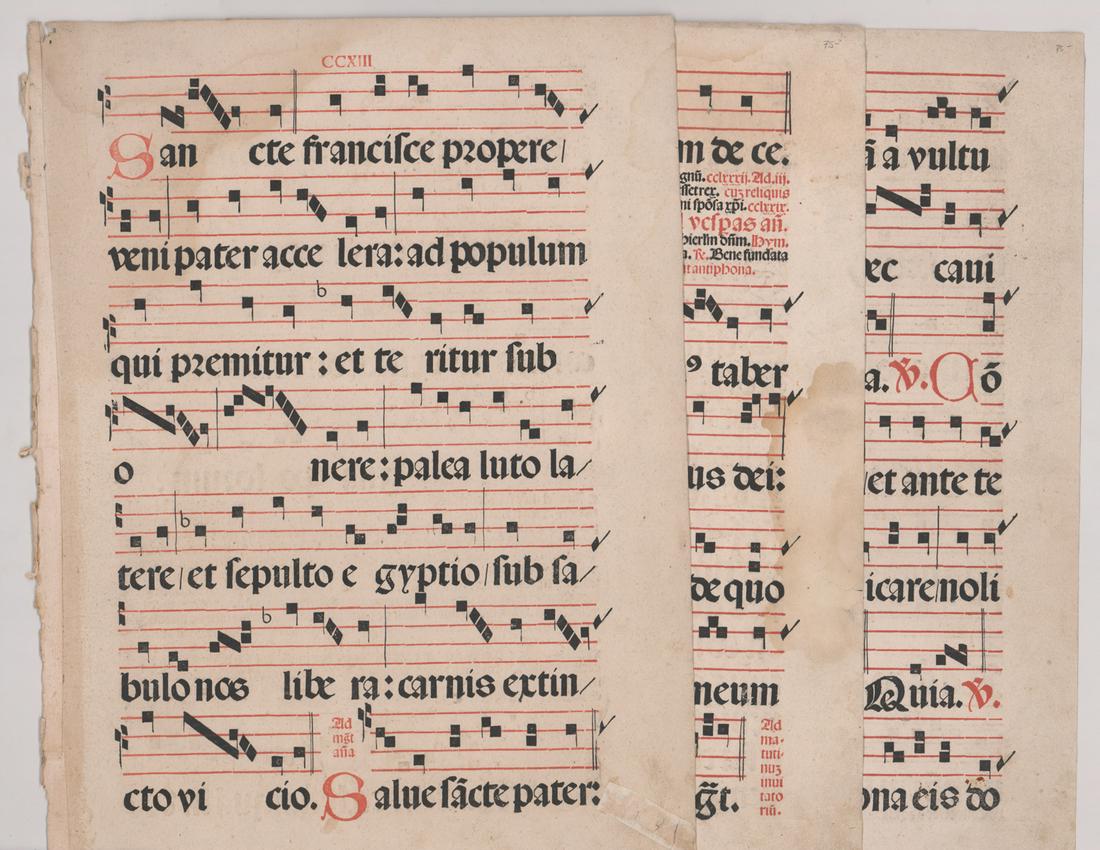 CCXIII
San cte francisce propere/
veni pater acce lera: ad populum
qui premitur: et te ritur sub
o nere: palea luto la/
tere/et sepulto e gyptio/sub sa/
bulo nos libe ra: carnis extin/
Ad
mgt
aña
cto vi cio. Salue sācte pater:
75-
m de ce.
gnū. cclxxxij. Ad. iij.
sset rex. cuz reliquis
ni spōsa xpi. cclxxix.
vespas añ.
hierlm dñm. Hym.
a. R. Bene fundata
it antiphona.
ꝰ taber
us dei:
de quo
meum
gt.
Ad
ma-
tuti-
nuz
inui
tato
riū.
75-
ā a vultu
ec caui
a. V. Cō
et ante te
icare/noli
Quia. V.
ona eis do